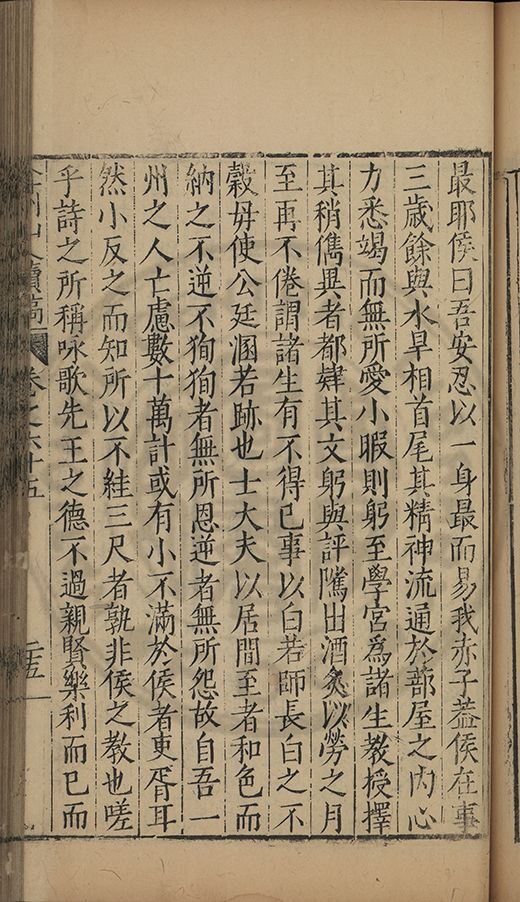 最耶侯曰吾安忍以一身最而易我赤子葢侯在事
三歲餘與水旱相首尾其精神流通於蔀屋之内心
力悉竭而無所愛小暇則躬至學宮爲諸生教授擇
其稍儁異者都肄其文躬與評隲出酒炙以勞之月
至再不倦謂諸生有不得已事以白若師長白之不
穀毋使公廷溷若跡也士大夫以居間至者和色而
納之不逆不狥狥者無所恩逆者無所怨故自吾一
州之人亡慮數十萬計或有小不滿於侯者吏胥耳
然小反之而知所以不絓三尺者孰非侯之教也嗟
乎詩之所稱咏歌先王之德不過親賢樂利而已而
弇州山人續稿 卷之六十五 二十五